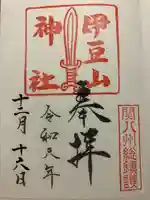 関八州総鎮護
奉拝
伊豆山
神社
令和元年
十二月十六日